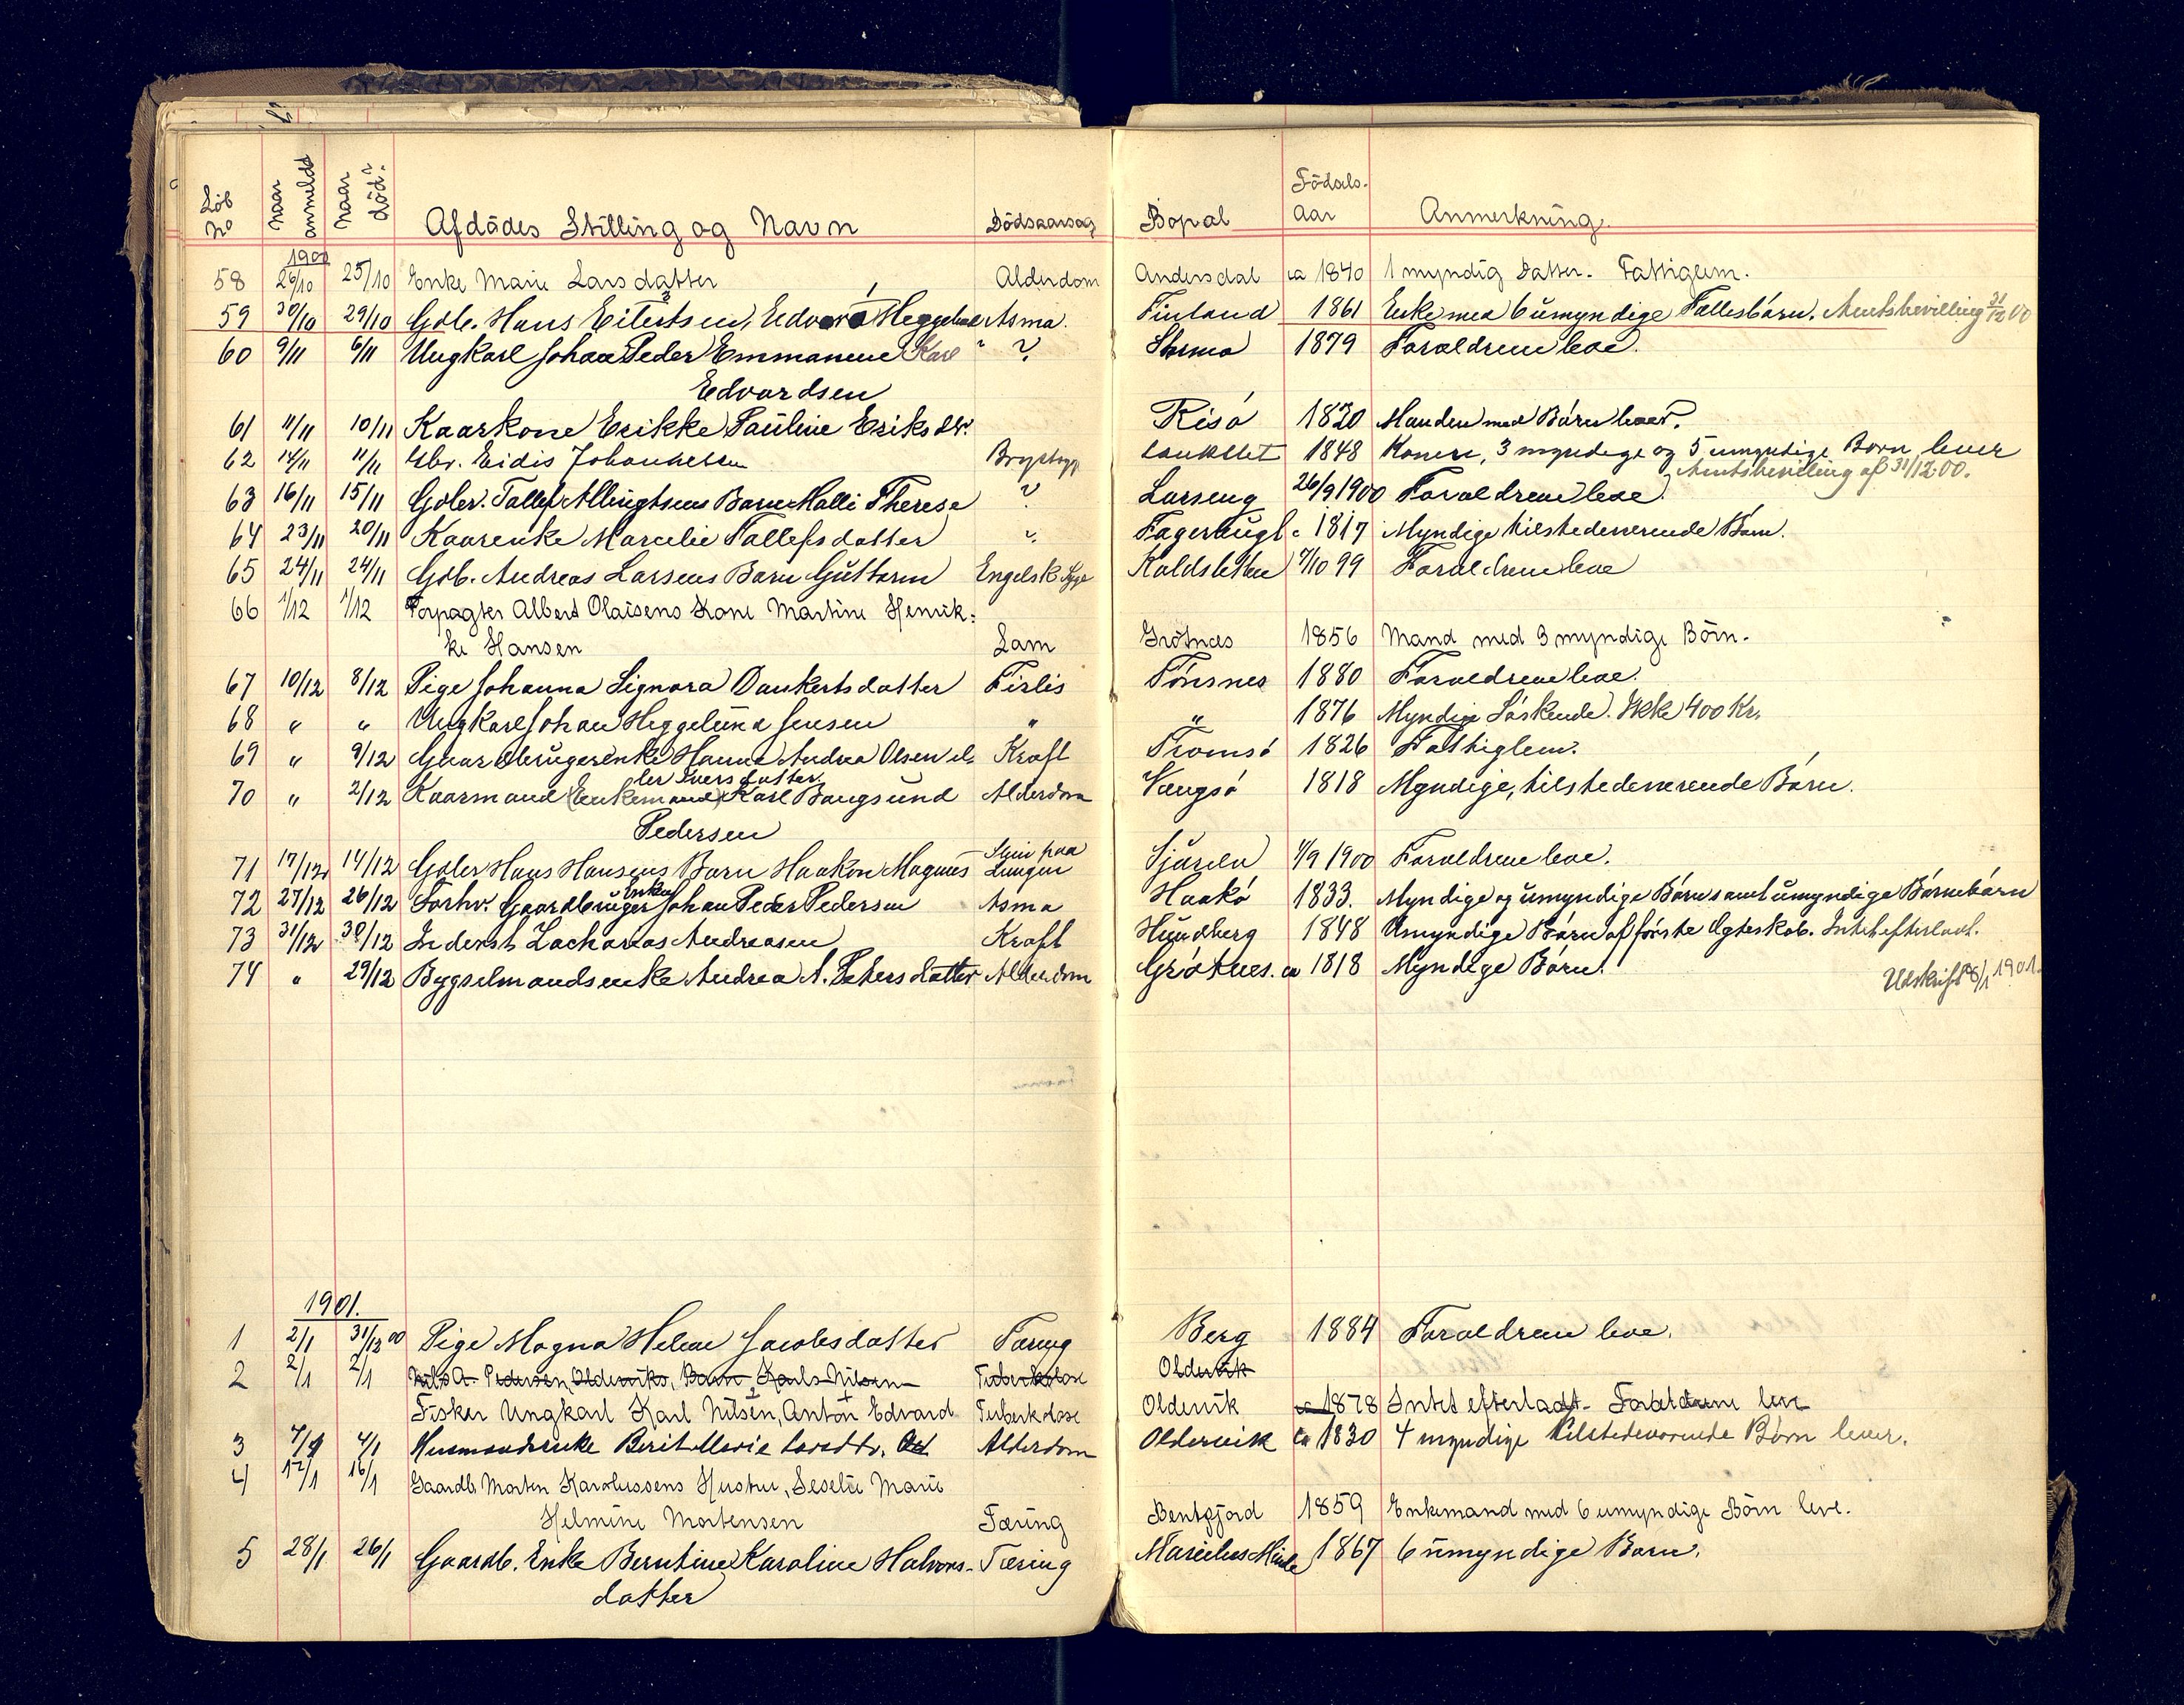 Löb No | Naar anmeldt | Naar död? | Afdödes Stilling og Navn | Dödsaarsag | Bopæl | Födsels-Aar | Anmerkning.
1900
58 | 26/10 | 25/10 | Enke Marie Larsdatter | Alderdom | Andersdal | ca 1840 | 1 myndig Datter. Fattiglem.
59 | 30/10 | 29/10 | Gdb. Hans Eilertsen, Edvard Heggelund | Asma. | Finland | 1861 | Enke med 6 umyndige Fællesbørn. Amtsbevilling 31/12 00
60 | 9/11 | 6/11 | Ungkarl Johan Peder Emmanuel Karl | ? | | 1879 | Forældrene leve.
Edvardsen
61 | 11/11 | 10/11 | Kaarkone Erikke Pauline Eriksdtr. | | Risø | 1820 | Manden med Børn lever.
62 | 14/11 | 11/11 | Gbr. Eidis Johannesen | Brystsyg | Lanksletl | 1848 | Konen, 3 myndige og 5 umyndige Børn lever
Amtsbevilling af 31/12 00.
63 | 16/11 | 15/11 | Gdbr. Tollef Ellingsens Barn Halli Therese | ? | Larseng | 26/9 1900 | Forældrene leve.
64 | 23/11 | 20/11 | Kaarenke Marcelie Tollefsdatter | ? | Fagerhaugl | c 1817 | Myndige tilstedeværende Børn.
65 | 24/11 | 24/11 | Gdb. Andreas Larsens Barn Guttorm | Engelsk Syge | Koldsletten | 7/10 99 | Forældrene leve
66 | 1/12 | 1/12 | Forpagter Albert Olaisens Kone Martine Henrik-
ke Hansen | Lam | Grötnæs | 1856 | Mand med 3 myndige Börn.
67 | 10/12 | 8/12 | Pige Johanna Signora Dankertsdatter | Tirlis | Tönsnes | 1880 | Forældrene leve.
68 | " | " | Ungkarl Johan Heggelund Jensen | " | " | 1876 | Myndige Søskende. Ikke 400 Kr.
69 | " | 9/12 | Gaardbrugerenke Hanna Andrea Olsen el- | Kræft | Tromsø | 1826 | Fattiglem.
ler Iversdatter
70 | " | 2/12 | Kaarmand (Enkemand) Karl Bangsund | Alderdom | Vængsø | 1818 | Myndige, tilstedeværende Børn.
Pedersen
71 | 17/12 | 14/12 | Gdbr Hans Hansens Barn Haakon Magnus | Slim paa Lungen | Sjursnes | 4/9 1900 | Forældrene leve.
72 | 27/12 | 26/12 | Forhv. Gaardbruger Enkem. Johan Peder Pedersen | Asma | Haakø | 1833. | Myndige og umyndige Børn samt umyndige Børnebørn
73 | 31/12 | 30/12 | Inderst Zacharias Andreasen | Kræft | Hundberg | 1848 | Umyndige Børn af første Ægteskab. Intet efterladt.
74 | " | 29/12 | Bygselmandsenke Andrea A. Petersdatter | Alderdom | Grøtnes. | ca 1818 | Myndige Børn.
Udskrift 8/1 1901.
1901.
1 | 2/1 | 31/12 00 | Pige Magna Helene Jacobsdatter | Tæring | Berg | 1884 | Forældrene leve.
2 | 2/1 | 2/1 | Nils A. Pedersen, Olderviks, Barn, Karls Nilsen | Tuberkulose | Oldervik
Fisker Ungkarl Karl Nilsen, Anton Edvard | Tuberkulose | Oldervik | ca 1878 | Intet efterladt. Forældrene leve
3 | 7/1 | 4/1 | Husmandsenke Berit Marie Larsdtr. | Alderdom | Oldervik | ca 1830 | 4 myndige tilstedeværende Børn lever.
4 | 17/1 | 16/1 | Gaardb Morten Karolussens Hustru, Leselie Marie
Helmine Mortensen | Tæring | Bentsjord | 1859 | Enkemand med 6 umyndige Börn leve.
5 | 28/1 | 26/1 | Gaardb. Enke Berntine Karoline Halvors- | Tæring | Marielus Minde | 1867 | 6 umyndige Børn.
datter